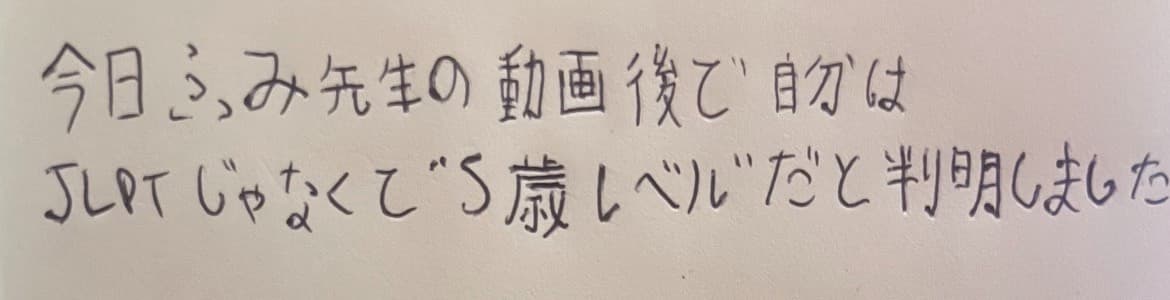 今日ふみ先生の動画後で自分は
JLPTじゃなくて"5歳レベル"だと判明しました